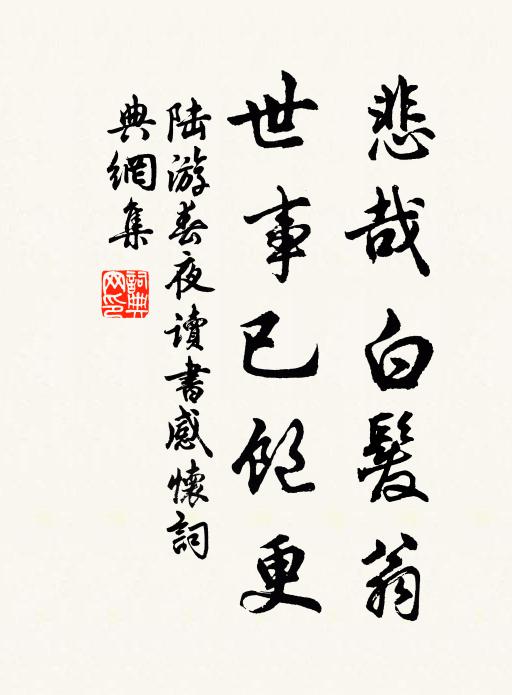 悲哉白髮翁
世事已飽更
陸游春夜讀書感懷詞
典網集
詞典網印